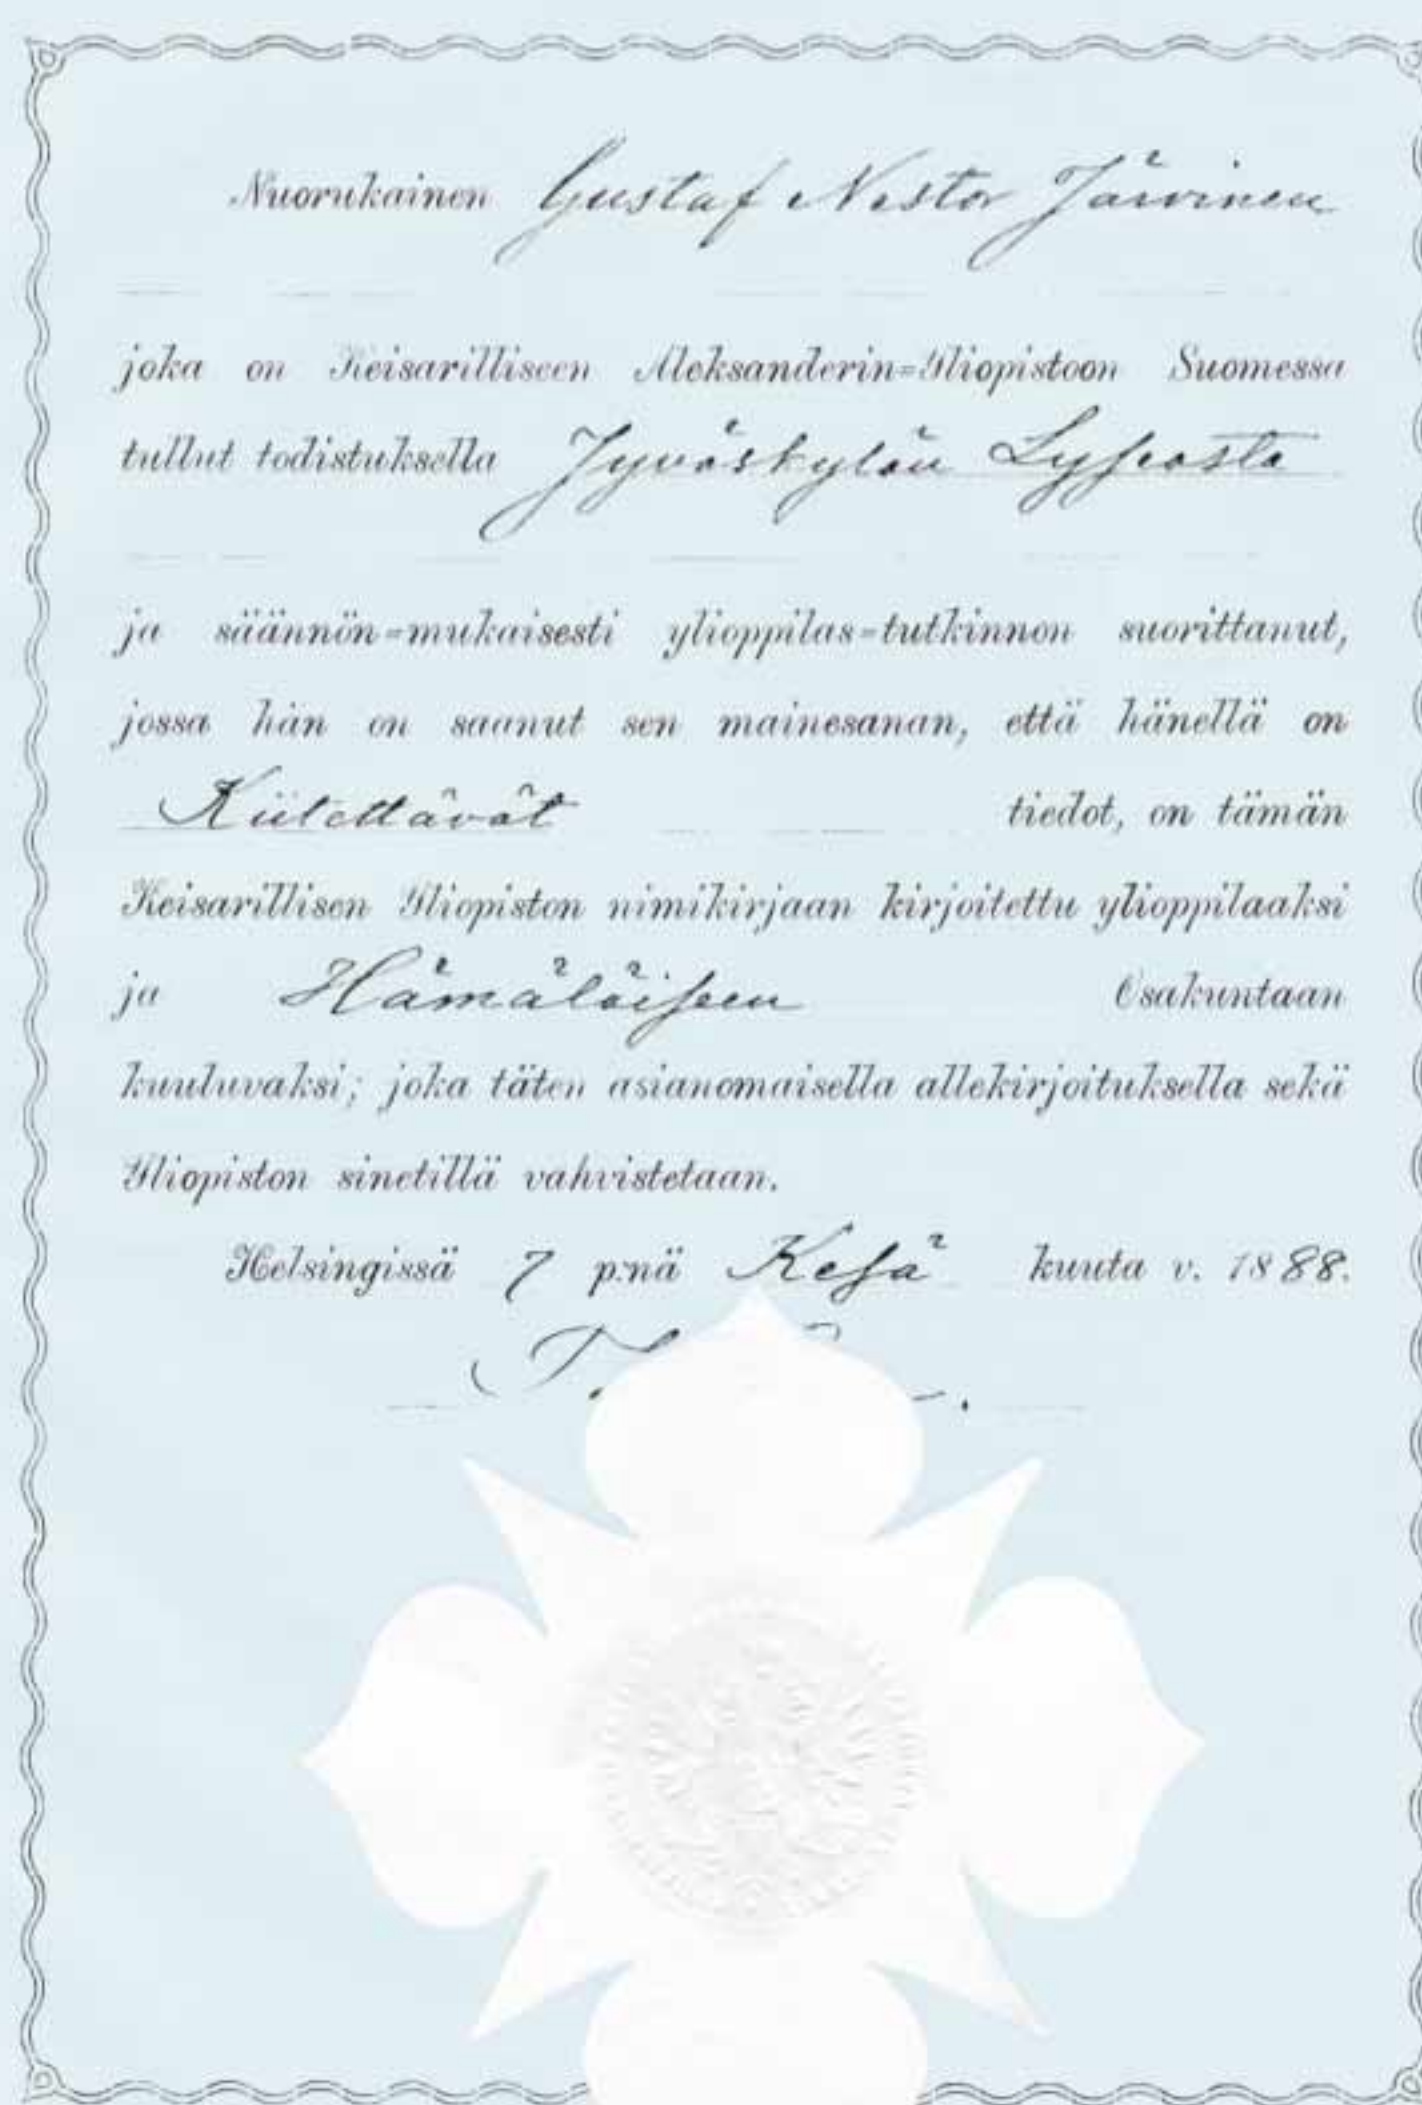 Nuorukainen Gustaf Nestor Järvinen
joka on Keisarilliseen Aleksanderin=Yliopistoon Suomessa
tullut todistuksella Jyväskylän Lyseosta
ja säännön=mukaisesti ylioppilas=tutkinnon suorittanut,
jossa hän on saanut sen mainesanan, että hänellä on
Kiitettävät tiedot, on tämän
Keisarillisen Yliopiston nimikirjaan kirjoitettu ylioppilaaksi
ja Hämäläiseen Osakuntaan
kuuluvaksi; joka täten asianomaisella allekirjoituksella sekä
Yliopiston sinetillä vahvistetaan.
Helsingissä 7 p:nä Kesä kuuta v. 1888.